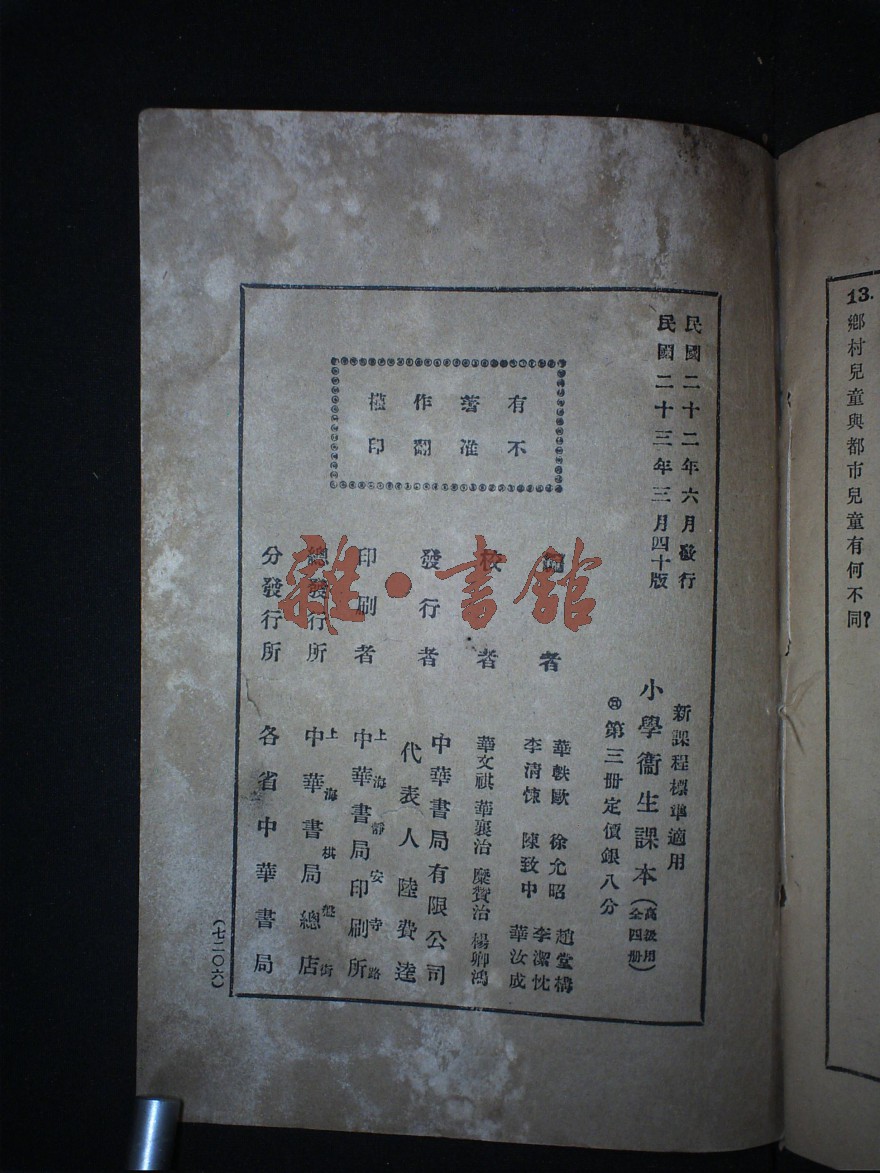 13. 鄉村兒童與都市兒童有何不同?
民國二十二年六月發行
民國二十三年三月四十版
新課程標準適用
小學衞生課本(高級用 全四册)
第三册定價銀八分
有著作權
不准翻印
編者
華軼歐 徐允昭 趙堂構
李清悚 陳致中 李潔忱
華汝成
校者
華文祺 華襄治 糜贊治 楊卿鴻
發行者
中華書局有限公司
代表人 陸費逵
印刷者
上海靜安寺路
中華書局印刷所
總發行所
上海棋盤街
中華書局總店
分發行所
各省中華書局
(七二〇六)
雜·書館